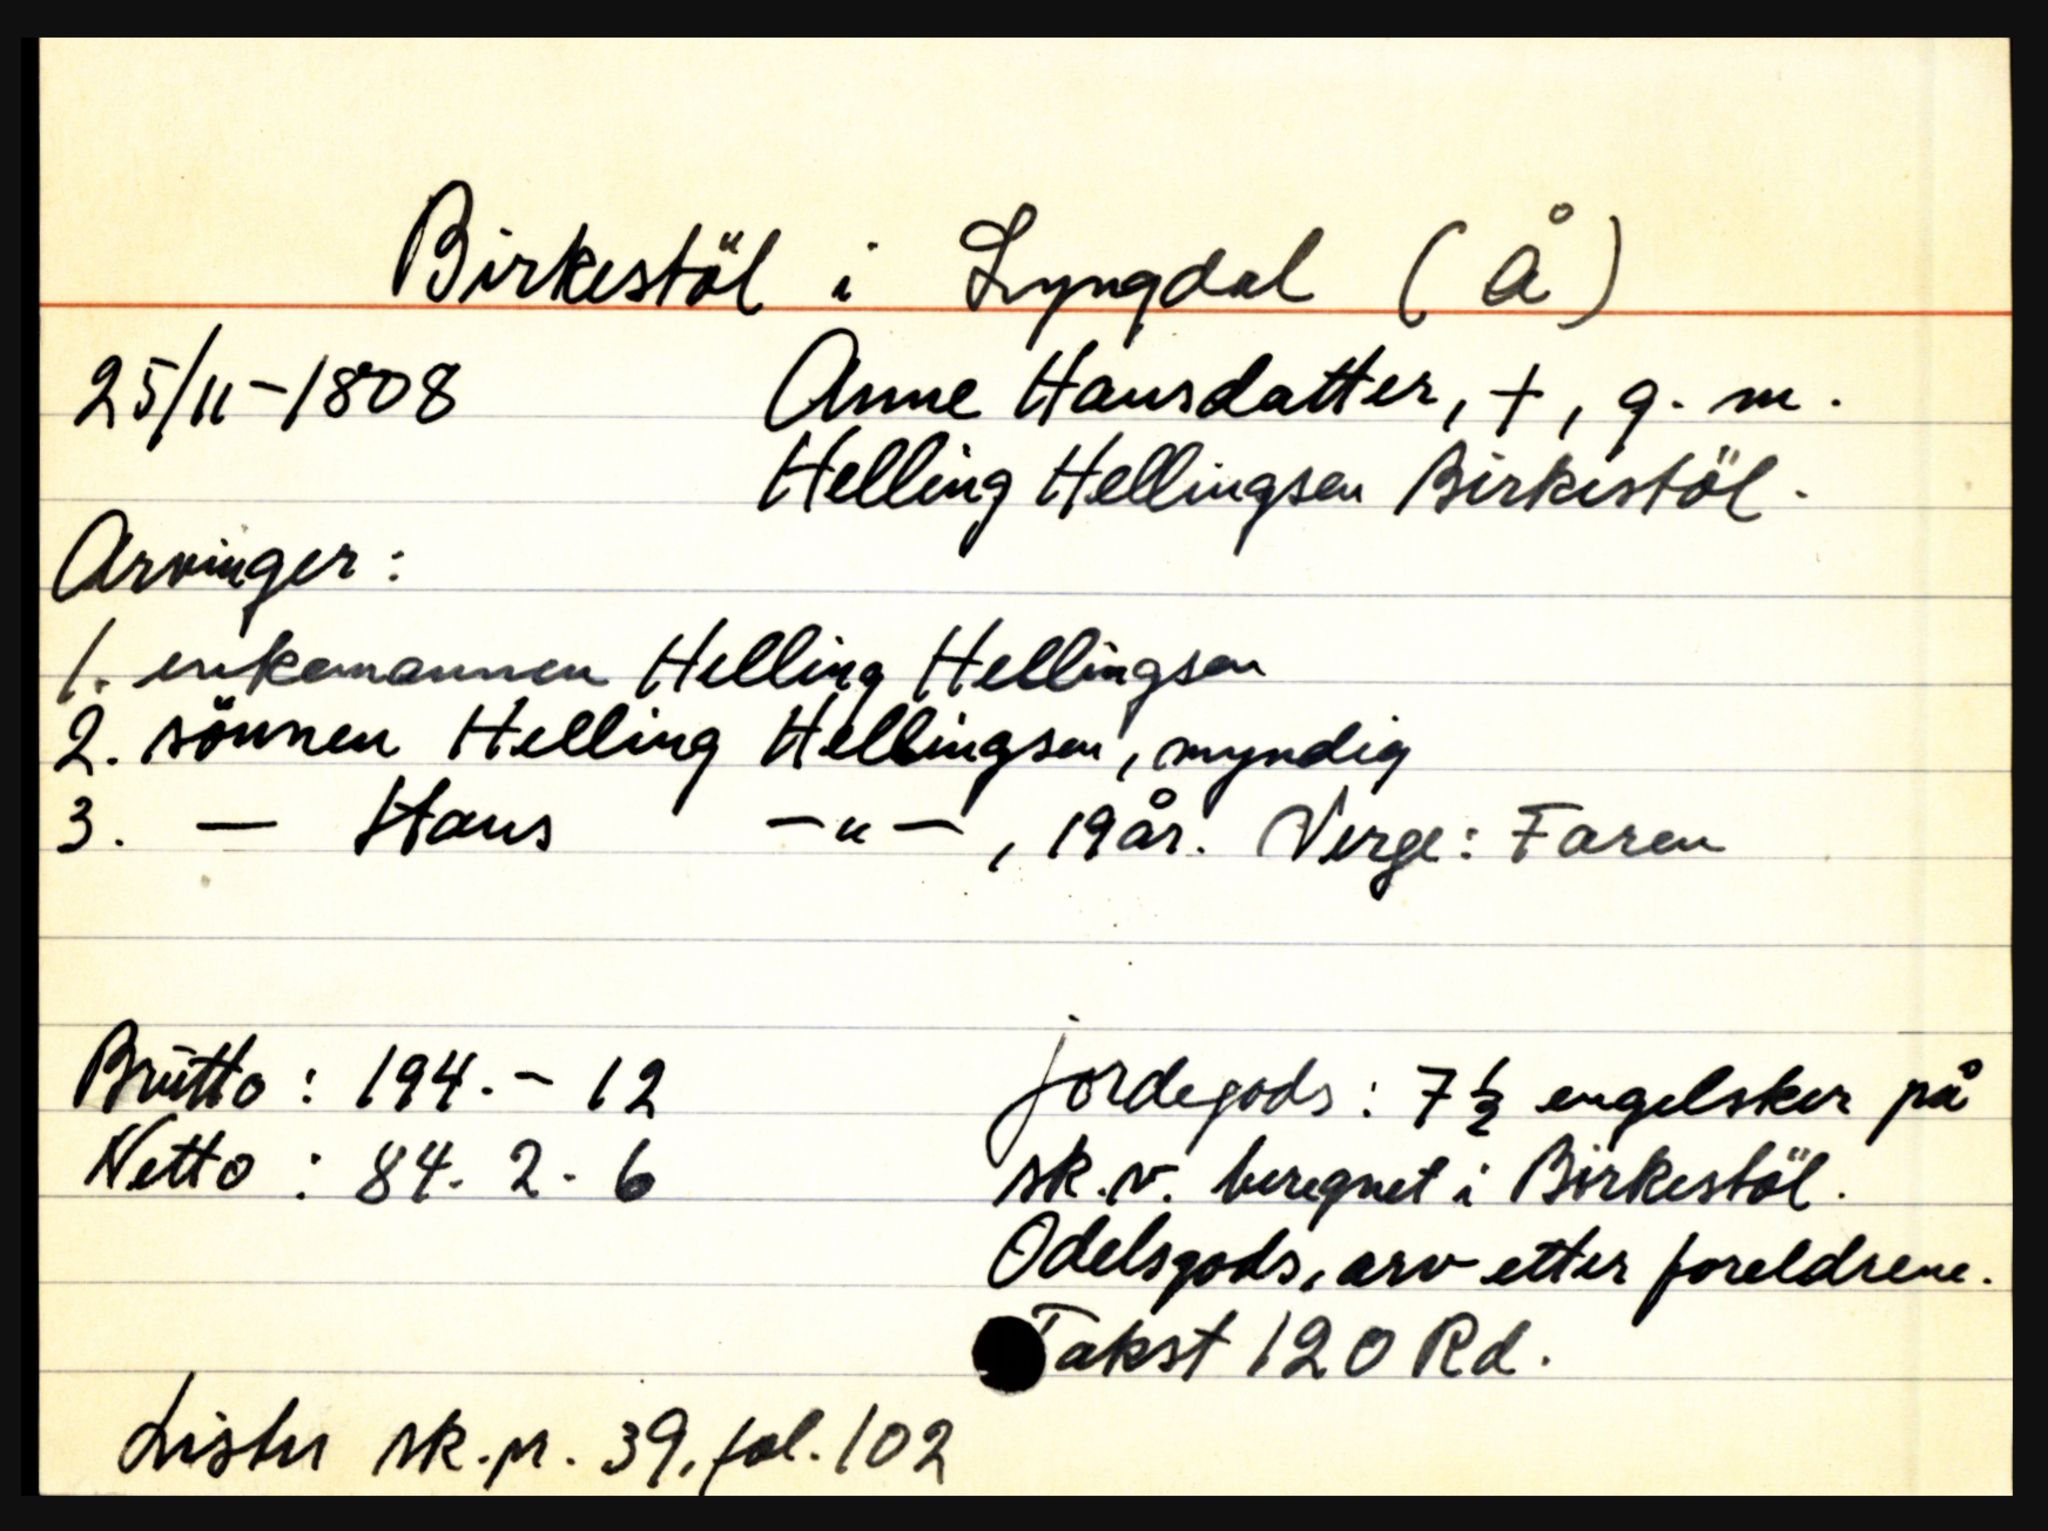 Birkestöl i Lyngdal (Å)
25/11-1808 Anne Hansdatter, +, g. m.
Helling Hellingsen Birkestöl.
Arvinger:
1. enkemannen Helling Hellingsen
2. sönnen Helling Hellingsen, myndig
3. — Hans —"—, 19 år. Verge: Faren
Brutto: 194. - 12
Netto: 84. 2. 6
jordegods: 7 1/2 engelsker på
sk.v. beregnet i Birkestöl.
Odelsgods, arv etter foreldrene.
Takst 120 Rd.
Lister sk.pr. 39, fol. 102